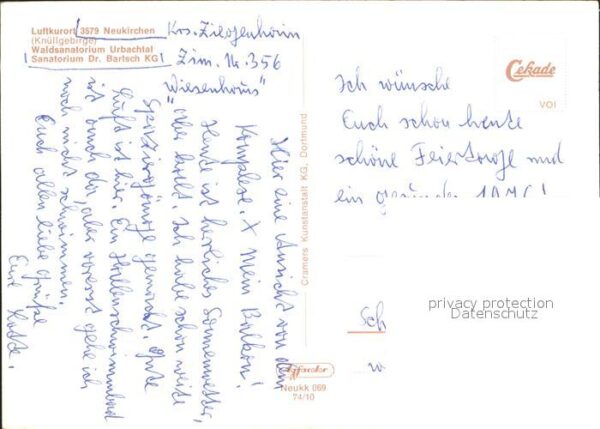 Luftkurort 3579 Neukirchen
(Knüllgebirge)
Waldsanatorium Urbachtal
Sanatorium Dr. Bartsch KG
Krs. Ziegenhain
Zim. Nr. 356
"Wiesenhaus"
Hier eine Ansicht von dem
Komplex. X Mein Balkon!
Heute ist herrliches Sonnenwetter,
aber kalt. Ich habe schon weite
Spaziergänge gemacht. Gute
Luft ist hier. Ein Hallenschwimmbad
ist auch da, aber vorerst gehe ich
noch nicht schwimmen.
Euch allen liebe Grüße
Eure
Cramers Kunstanstalt KG, Dortmund
Neukk 069
74/10
Cekade
VOI
Ich wünsche
Euch schon heute
schöne Feiertage und
ein
privacy protection
Datenschutz
Sch
w